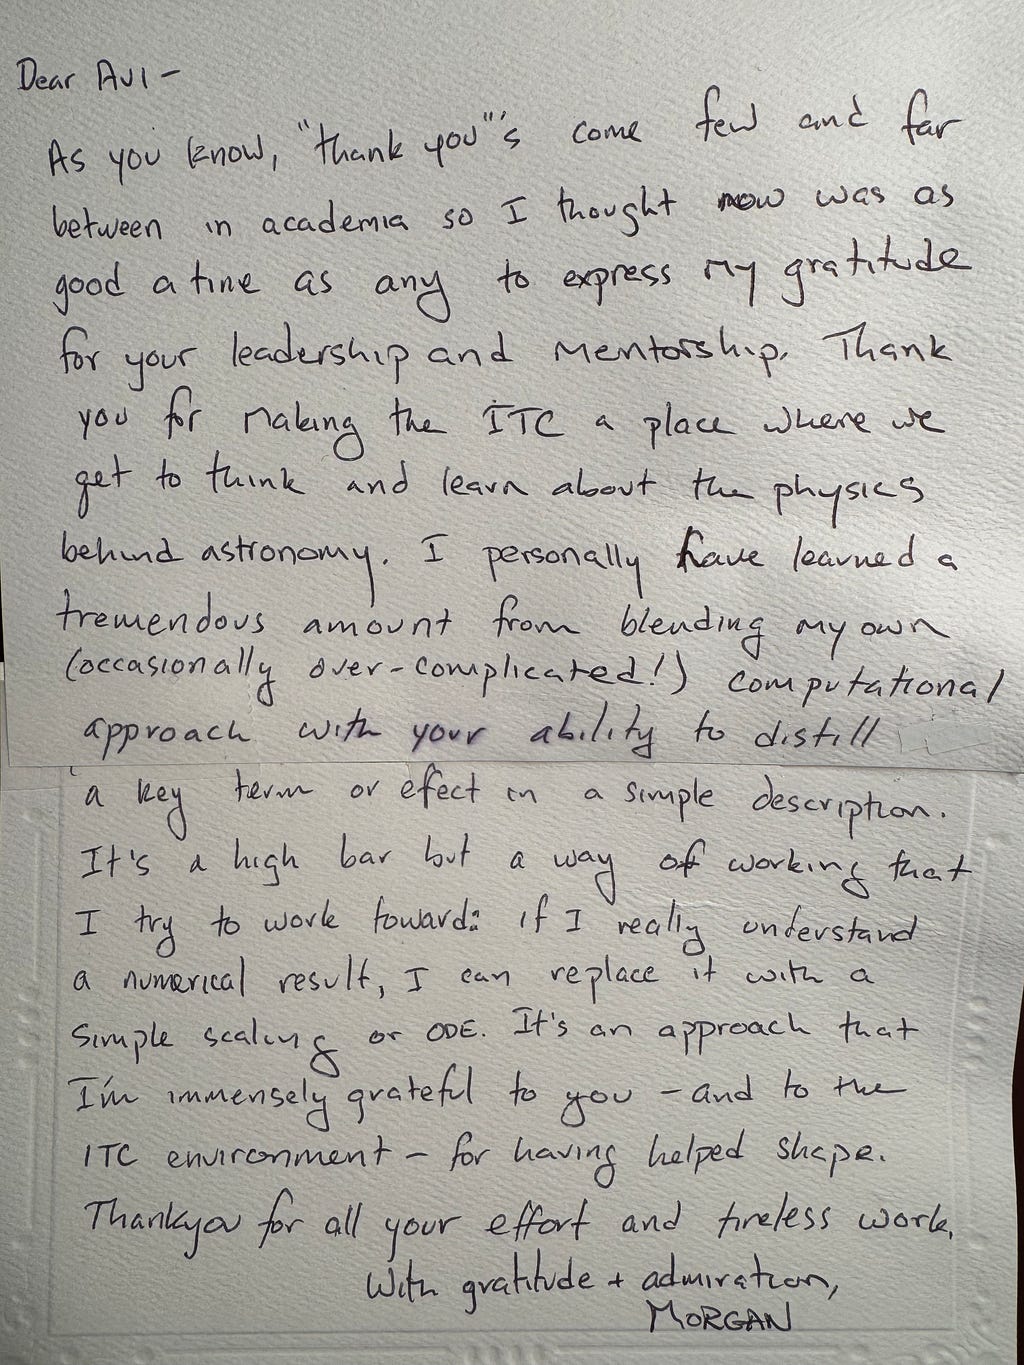 Dear Avi -
As you know, "thank you"'s come few and far
between in academia so I thought now was as
good a time as any to express my gratitude
for your leadership and mentorship. Thank
you for making the ITC a place where we
get to think and learn about the physics
behind astronomy. I personally have learned a
tremendous amount from blending my own
(occasionally over-complicated!) computational
approach with your ability to distill
a key term or efect in a simple description.
It's a high bar but a way of working that
I try to work toward: if I really understand
a numerical result, I can replace it with a
simple scaling or ODE. It's an approach that
I'm immensely grateful to you - and to the
ITC environment - for having helped shape.
Thankyou for all your effort and tireless work.
With gratitude + admiration,
MORGAN